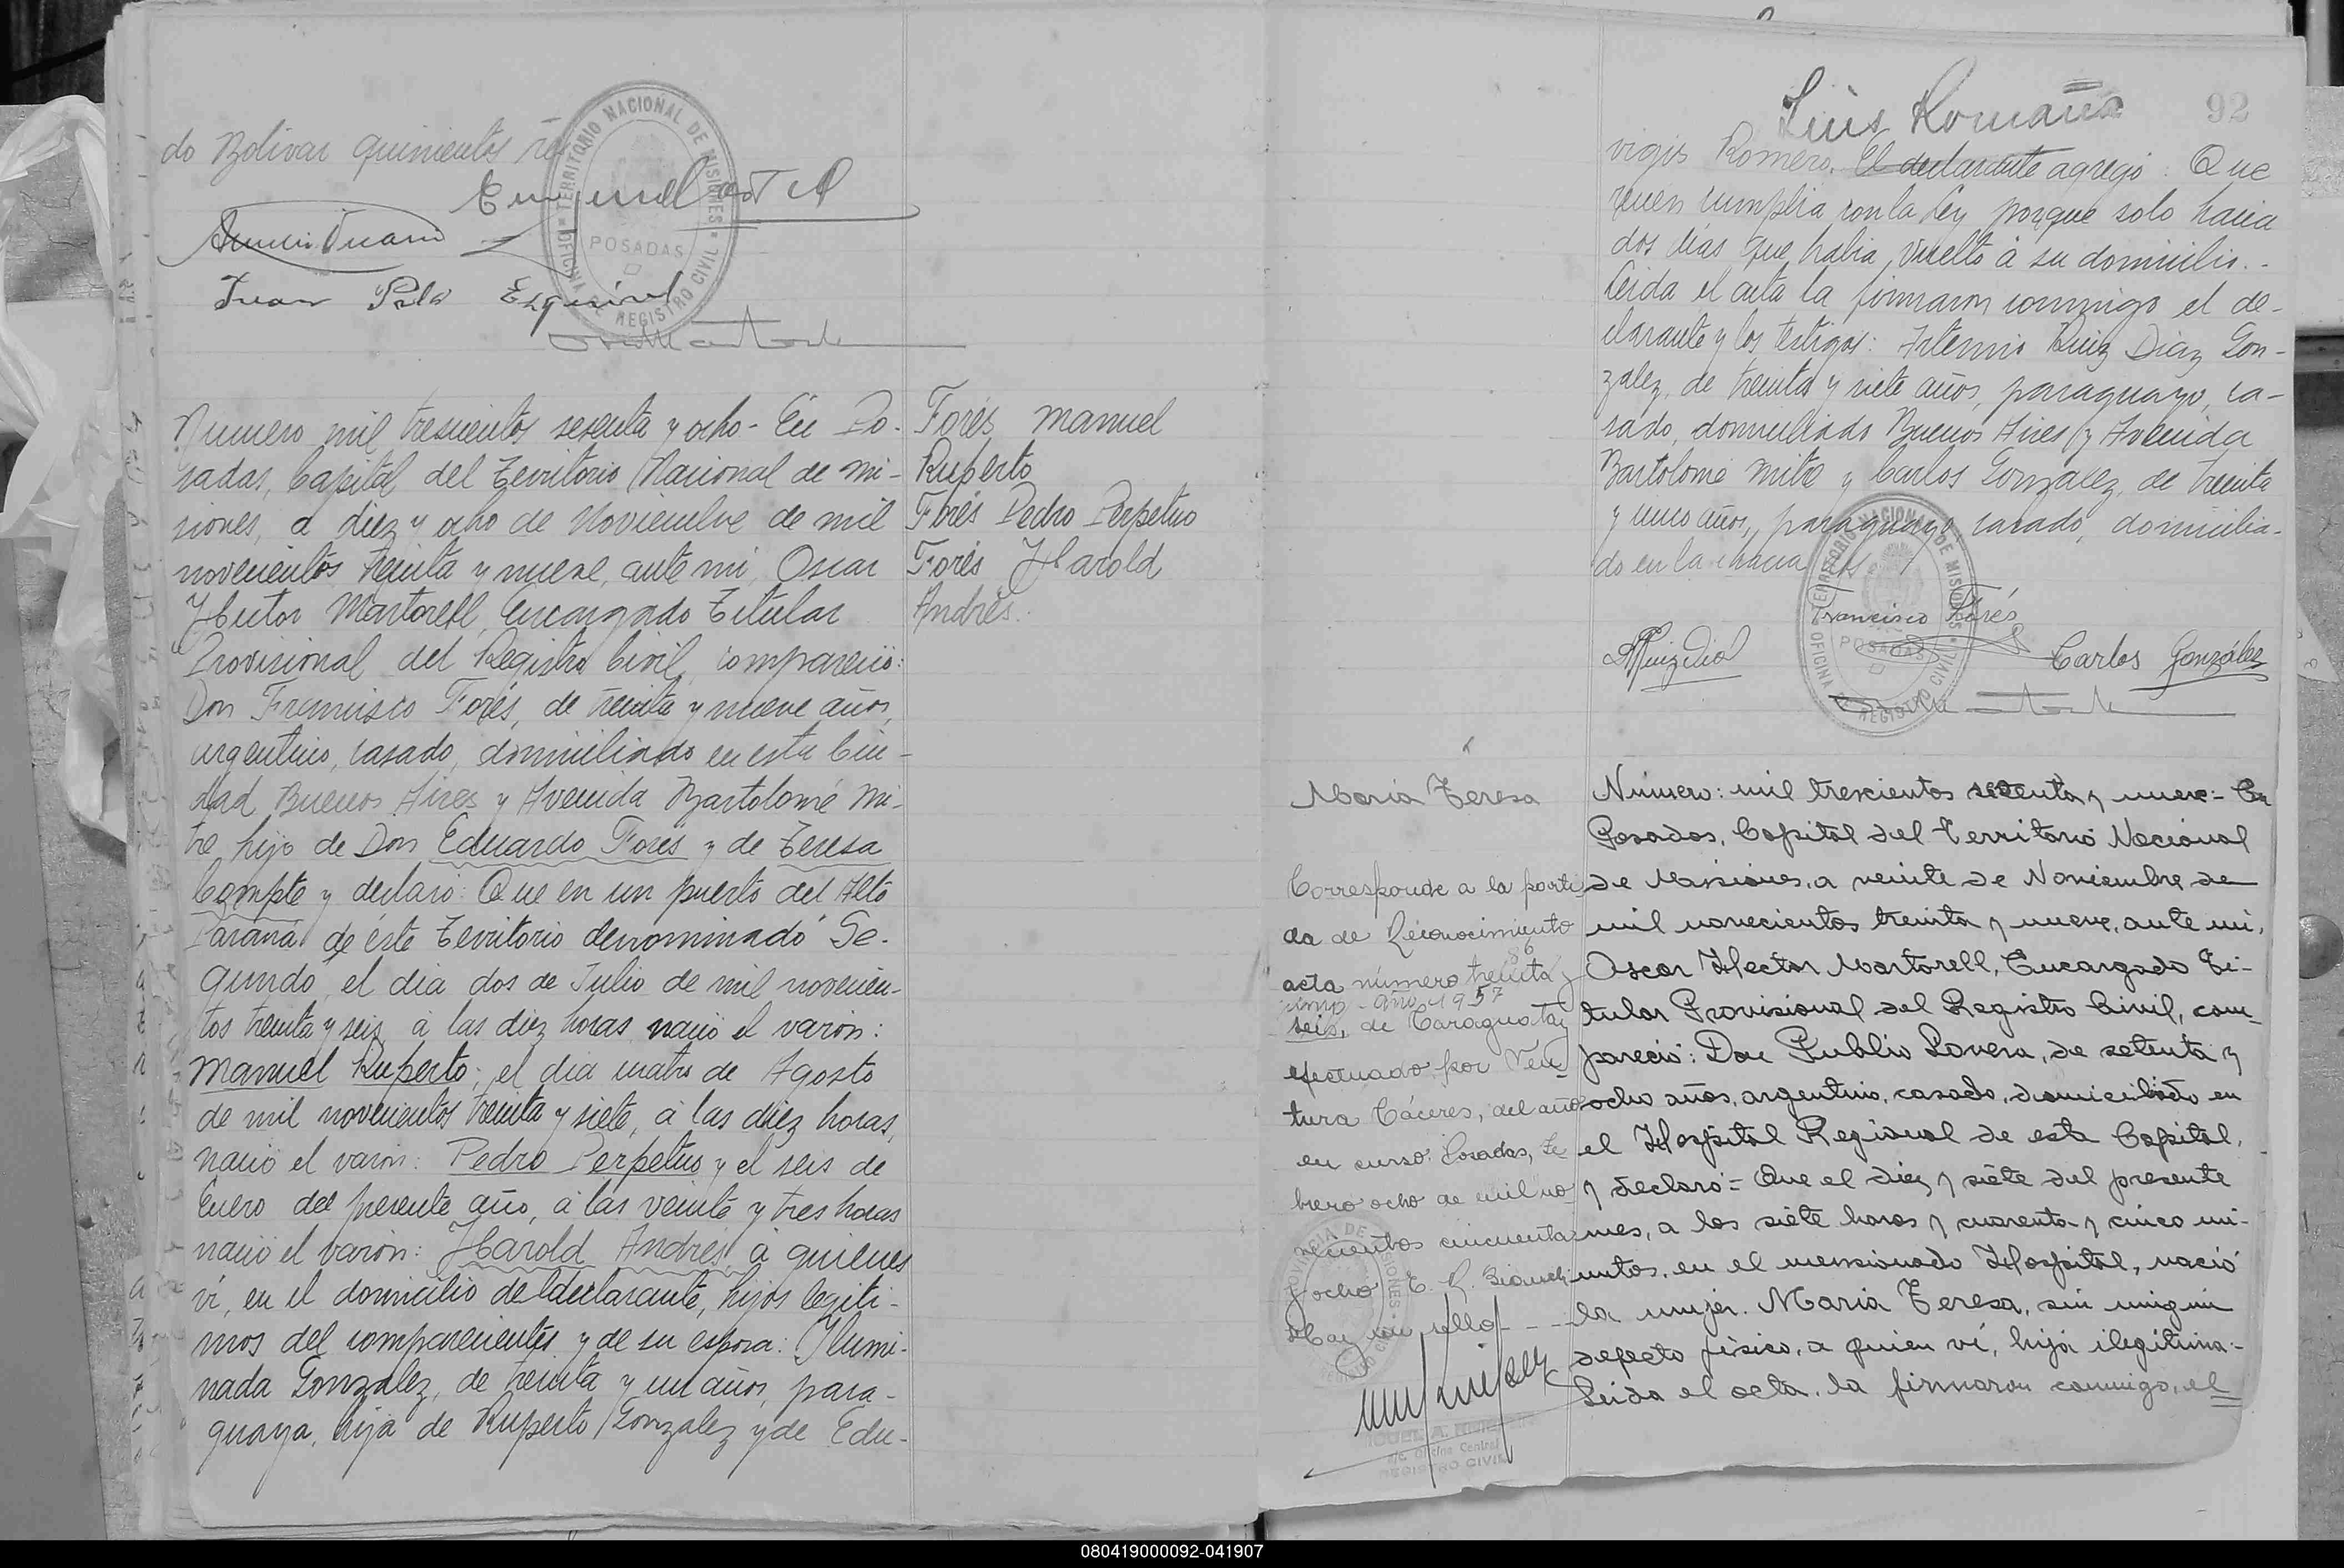 do Bolivar quinientos
Juan Esquivel
TERRITORIO NACIONAL DE MISIONES
POSADAS
OFICINA DE REGISTRO CIVIL
Numero mil trescientos sesenta y ocho - En Po-
sadas, Capital del Territorio Nacional de Mi-
siones, a diez y ocho de Noviembre de mil
novecientos treinta y nueve, ante mi, Oscar
Hector Martorell, Encargado Titular
Provisional del Registro Civil, compareció:
Don Francisco Forés, de treinta y nueve años,
argentino, casado, domiciliado en esta Ciu-
dad Buenos Aires y Avenida Bartolomé Mi-
tre, hijo de Don Eduardo Forés y de Teresa
Compte y declaró: Que en un puerto del Alto
Paraná de éste Territorio denominado Se-
gundo, el dia dos de Julio de mil novecien-
tos treinta y seis, a las diez horas nació el varón:
Manuel Ruperto; el dia cuatro de Agosto
de mil novecientos treinta y siete, a las diez horas,
nació el varón: Pedro Perpetuo y el seis de
Enero del presente año, a las veinte y tres horas
nació el varón: Harold Andrés, a quienes
ví, en el domicilio del declarante, hijos legiti-
mos del compareciente y de su esposa: Ilumi-
nada Gonzalez, de treinta y un años, para-
guaya, hija de Ruperto Gonzalez y de Edu-
Forés Manuel
Ruperto
Forés Pedro Perpetuo
Forés Harold
Andrés.
Luis Romaña
92
vigis Romero. El declarante agregó: Que
recien cumplia con la Ley porque solo hacia
dos dias que habia vuelto á su domicilio.-
Leida el acta la firmaron conmigo el de-
clarante y los testigos: Artemio Ruiz Diaz Gon-
zalez, de treinta y siete años, paraguayo, ca-
sado, domiciliado Buenos Aires y Avenida
Bartolomé Mitre y Carlos Gonzalez, de treinta
y cinco años, paraguayo, casado, domicilia-
do en la chacra
TERRITORIO NACIONAL DE MISIONES
POSADAS
OFICINA DE REGISTRO CIVIL
Francisco Forés
Carlos González
Maria Teresa
Corresponde a la parti-
da de Reconocimiento
acta número treinta y
año 1957
seis, de Caraguatay
efectuado por Ven-
tura Cáceres, del año
en curso. Posadas, Fe-
brero ocho de mil no
vecientos cincuenta
y ocho E. R. Bianchi
Hay un sello
PROVINCIA DE MISIONES
Oficina Central
REGISTRO CIVIL
Número: mil trescientos sesenta y nueve - En
Posadas, Capital del Territorio Nacional
de Misiones, a veinte de Noviembre de
mil novecientos treinta y nueve, ante mi,
Oscar Hector Martorell, Encargado Ti-
tular Provisional del Registro Civil, com-
pareció: Don Publio Lovera, de setenta y
ocho años, argentino, casado, domiciliado en
el Hospital Regional de esta Capital,
y declaró - Que el diez y siete del presente
mes, a las siete horas y cuarenta y cinco mi-
nutos, en el mensionado Hospital, nació
la mujer. Maria Teresa, sin ningun
defecto fisico, a quien ví, hija ilegitima.-
Leida el acta, la firmaron conmigo, el
080419000092-041907